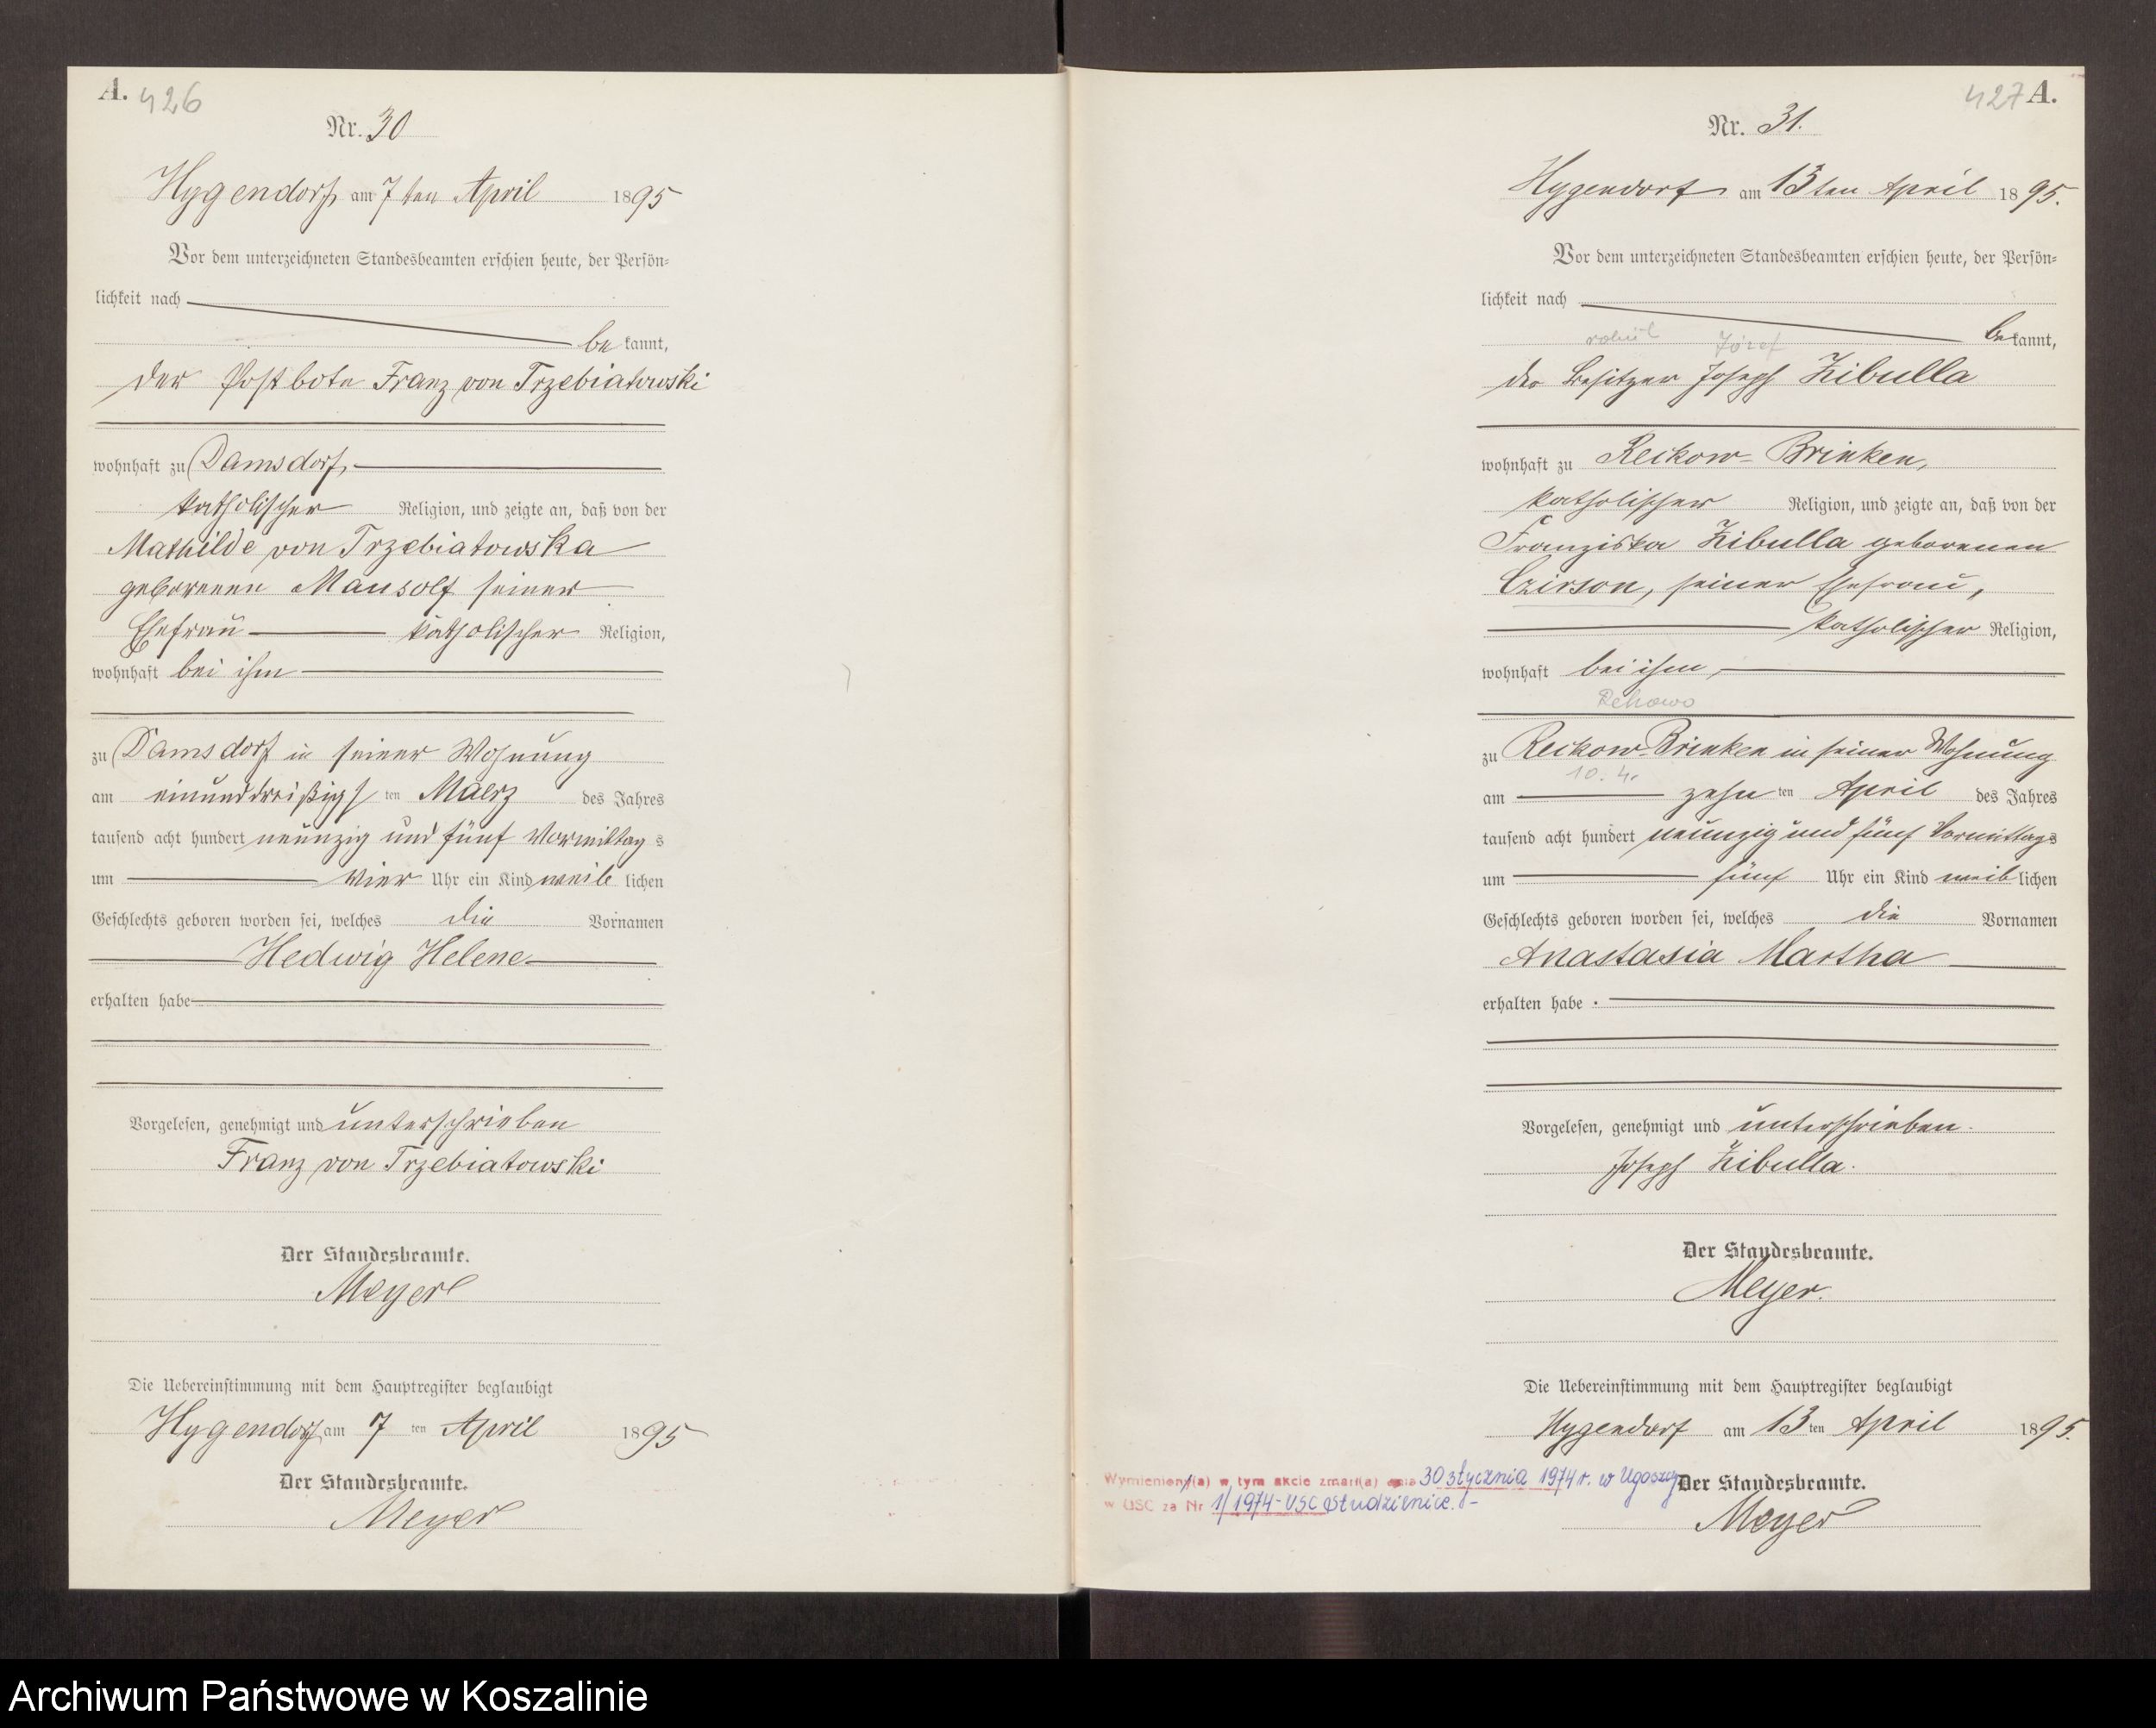 A. 426
Nr. 30
Hygendorf, am 7ten April 1895
Vor dem unterzeichneten Standesbeamten erschien heute, der Persön-
lichkeit nach
bekannt,
der Postbote Franz von Trzebiatowski
wohnhaft zu Damsdorf,
katholischer Religion, und zeigte an, daß von der
Mathilde von Trzebiatowska
geborenen Mausolf seiner
Ehefrau katholischer Religion,
wohnhaft bei ihm
zu Damsdorf in seiner Wohnung
am einunddreißigsten Maerz des Jahres
tausend acht hundert neunzig und fünf Vormittags
um vier Uhr ein Kind weiblichen
Geschlechts geboren worden sei, welches die Vornamen
Hedwig Helene
erhalten habe
Vorgelesen, genehmigt und unterschrieben
Franz von Trzebiatowski
Der Standesbeamte.
Meyer
Die Uebereinstimmung mit dem Hauptregister beglaubigt
Hygendorf am 7ten April 1895
Der Standesbeamte.
Meyer
427 A.
Nr. 31.
Hygendorf am 13ten April 1895.
Vor dem unterzeichneten Standesbeamten erschien heute, der Persön-
lichkeit nach
bekannt,
Józef
der Besitzer Joseph Zibulla
wohnhaft zu Reckow-Brinken,
katholischer Religion, und zeigte an, daß von der
Franziska Zibulla geborenen
Czirson, seiner Ehefrau,
katholischer Religion,
wohnhaft bei ihm,
Rekowo
zu Reckow-Brinken in seiner Wohnung
10. 4.
am zehnten April des Jahres
tausend acht hundert neunzig und fünf Vormittags
um fünf Uhr ein Kind weiblichen
Geschlechts geboren worden sei, welches die Vornamen
Anastasia Martha
erhalten habe.
Vorgelesen, genehmigt und unterschrieben.
Joseph Zibulla.
Der Standesbeamte.
Meyer.
Die Uebereinstimmung mit dem Hauptregister beglaubigt
Hygendorf am 13ten April 1895.
Der Standesbeamte.
Meyer
Wymieniony(a) w tym akcie zmarł(a) dnia 30 stycznia 1974 r. w Ugoszcz
w USC za Nr 1/1974 - USC Studzienice. -
Archiwum Państwowe w Koszalinie